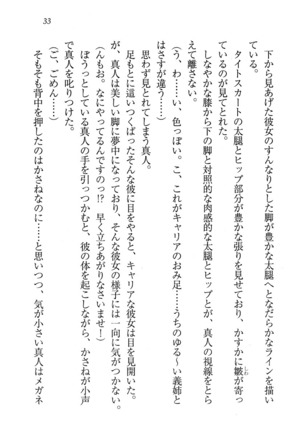 33
下から見あげた彼女のすんなりとした脚が豊かな太腿へとなだらかなラインを描い
ている。
タイトスカートの太腿とヒップ部分が豊かな張りを見せており、かすかに皺が寄っ
しわ
ているのが見てとれた。
しなやかな膝から下の脚と対照的な肉感的な太腿とヒップとが、真人の視線をとら
えて離さない。
（う、わ……い、色っぽい。こ、これがキャリアのおみ足……うちのゆる～い義姉と
はさすが違う……）
思わず見とれてしまう真人。
足もとに這いつくばったそんな彼に目をやると、キャリアな彼女は目を見開いた。
が、真人は美しい脚に夢中になっており、そんな彼女の様子には一向に気がつかない。
（んもお。なにやってるんですのっ!?　早く立ちあがりなさいませ！）
ぼうっとしている真人の手を引っつかむと、彼の体を起こしながら、かさねが小声
で真人を叱りつけた。
（ご、ごめん……）
そもそも背中を押したのはかさねなのに……と思いつつ、気が小さい真人はメガネ